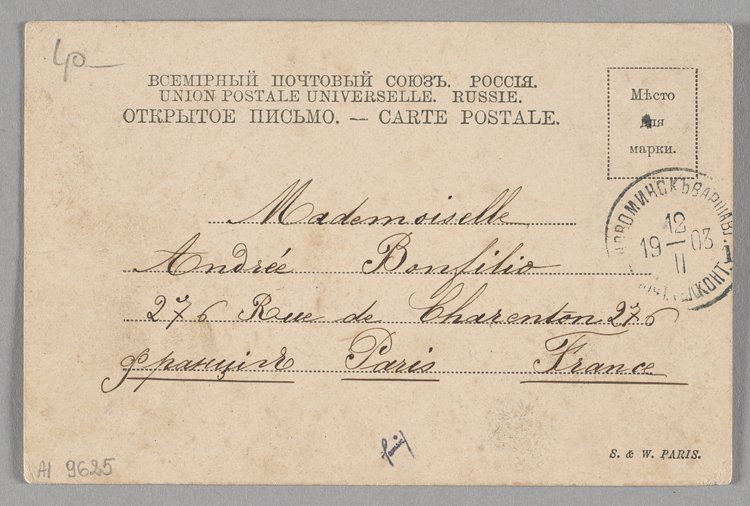 ВСЕМІРНЫЙ ПОЧТОВЫЙ СОЮЗЪ. РОССІЯ.
UNION POSTALE UNIVERSELLE. RUSSIE.
ОТКРЫТОЕ ПИСЬМО. — CARTE POSTALE.
Мѣсто
для
марки.
НОВОМИНСКЪ ВАРШАВ.
12
19 — 03
II
КОНТ.
Mademoiselle
Andrée Bonfilio
276 Rue de Charenton 276
Франція Paris France
S. & W. PARIS.
AI 9625